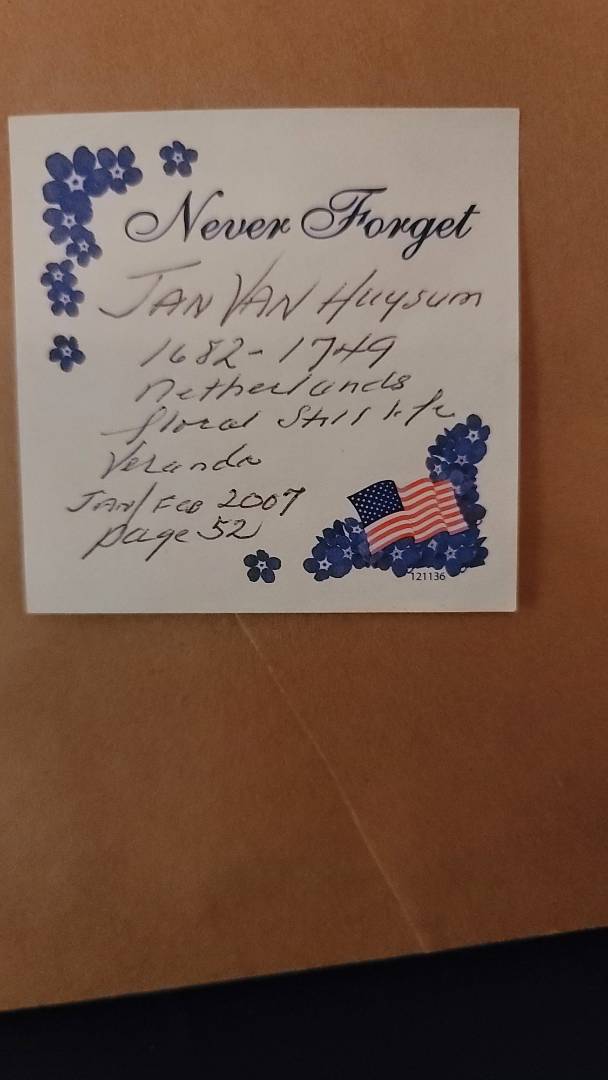 Never Forget
JAN VAN Huysum
1682-1749
Netherlands
floral Still life
Veranda
JAN/FEB 2007
page 52
121136